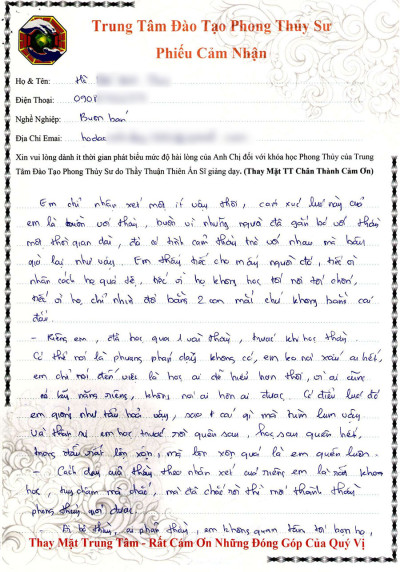 Trung Tâm Đào Tạo Phong Thủy Sư
Phiếu Cảm Nhận
Họ & Tên: Hồ
Điện Thoại: 090
Nghề Nghiệp: Buôn bán
Địa Chỉ Emai: hodac
Xin vui lòng dành ít thời gian phát biểu mức độ hài lòng của Anh Chị đối với khóa học Phong Thủy của Trung
Tâm Đào Tạo Phong Thủy Sư do Thầy Thuận Thiên Ân Sĩ giảng dạy. (Thay Mặt TT Chân Thành Cảm Ơn)
Em chỉ nhận xét một ít vậy thôi, cảm xúc lúc này của
em là buồn với thầy, buồn vì những người đã gắn bó với thầy
một thời gian dài, đã có tình cảm thầy trò với nhau mà bấy
giờ lại như vậy. Em thấy tiếc cho mấy người đó, tiếc vì
nhân cách họ quá tệ, tiếc vì họ không học tới nơi tới chốn,
tiếc vì họ chỉ nhìn đời bằng 2 con mắt chứ không bằng cái
đầu.
- Riêng em, đã học qua 1 vài thầy, trước khi học thầy.
Có thể nói là phương pháp dạy không có, em ko nói xấu ai hết,
em chỉ nói đến việc là học ai dễ hiểu hơn thôi, vì ai cũng
có kỹ năng riêng, không nói ai hơn ai được. Có điều lúc đó
em giống như tẩu hỏa vậy, sao có cái gì mà tùm lum vậy
Và thật sự em học trước rồi quên sau, học sau quên hết,
trong đầu rất lộn xộn, mà lộn xộn quá là em quên luôn.
- Cách dạy của thầy theo nhận xét của riêng em là rất khoa
học, tuy chậm mà chắc, mà đã chắc rồi thì mới thành thầy
phong thủy giỏi được.
- Ai bỏ thầy, ai phản thầy, em không quan tâm tới bọn họ,
Thay Mặt Trung Tâm - Rất Cảm Ơn Những Đóng Góp Của Quý Vị